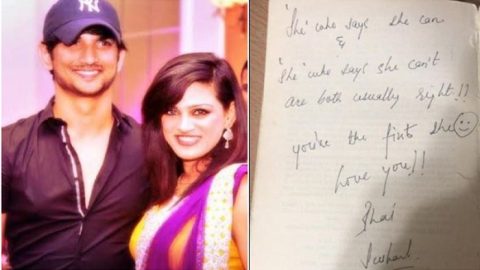 'She' who says she can
&
'She' who says she can't
are both usually right!!
you're the first she
Love you!!
Bhai
Sushant